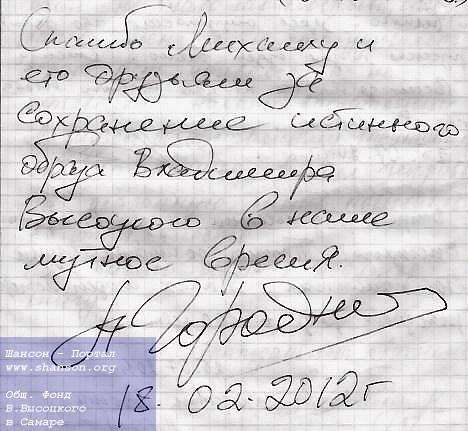 Спасибо Михаилу и
его друзьям за
сохранение истинного
образа Владимира
Высоцкого в наше
мутное время.
А Городни
18.02.2012г
Шансон - Портал
www.shanson.org
Общ. Фонд
В.Высоцкого
в Самаре